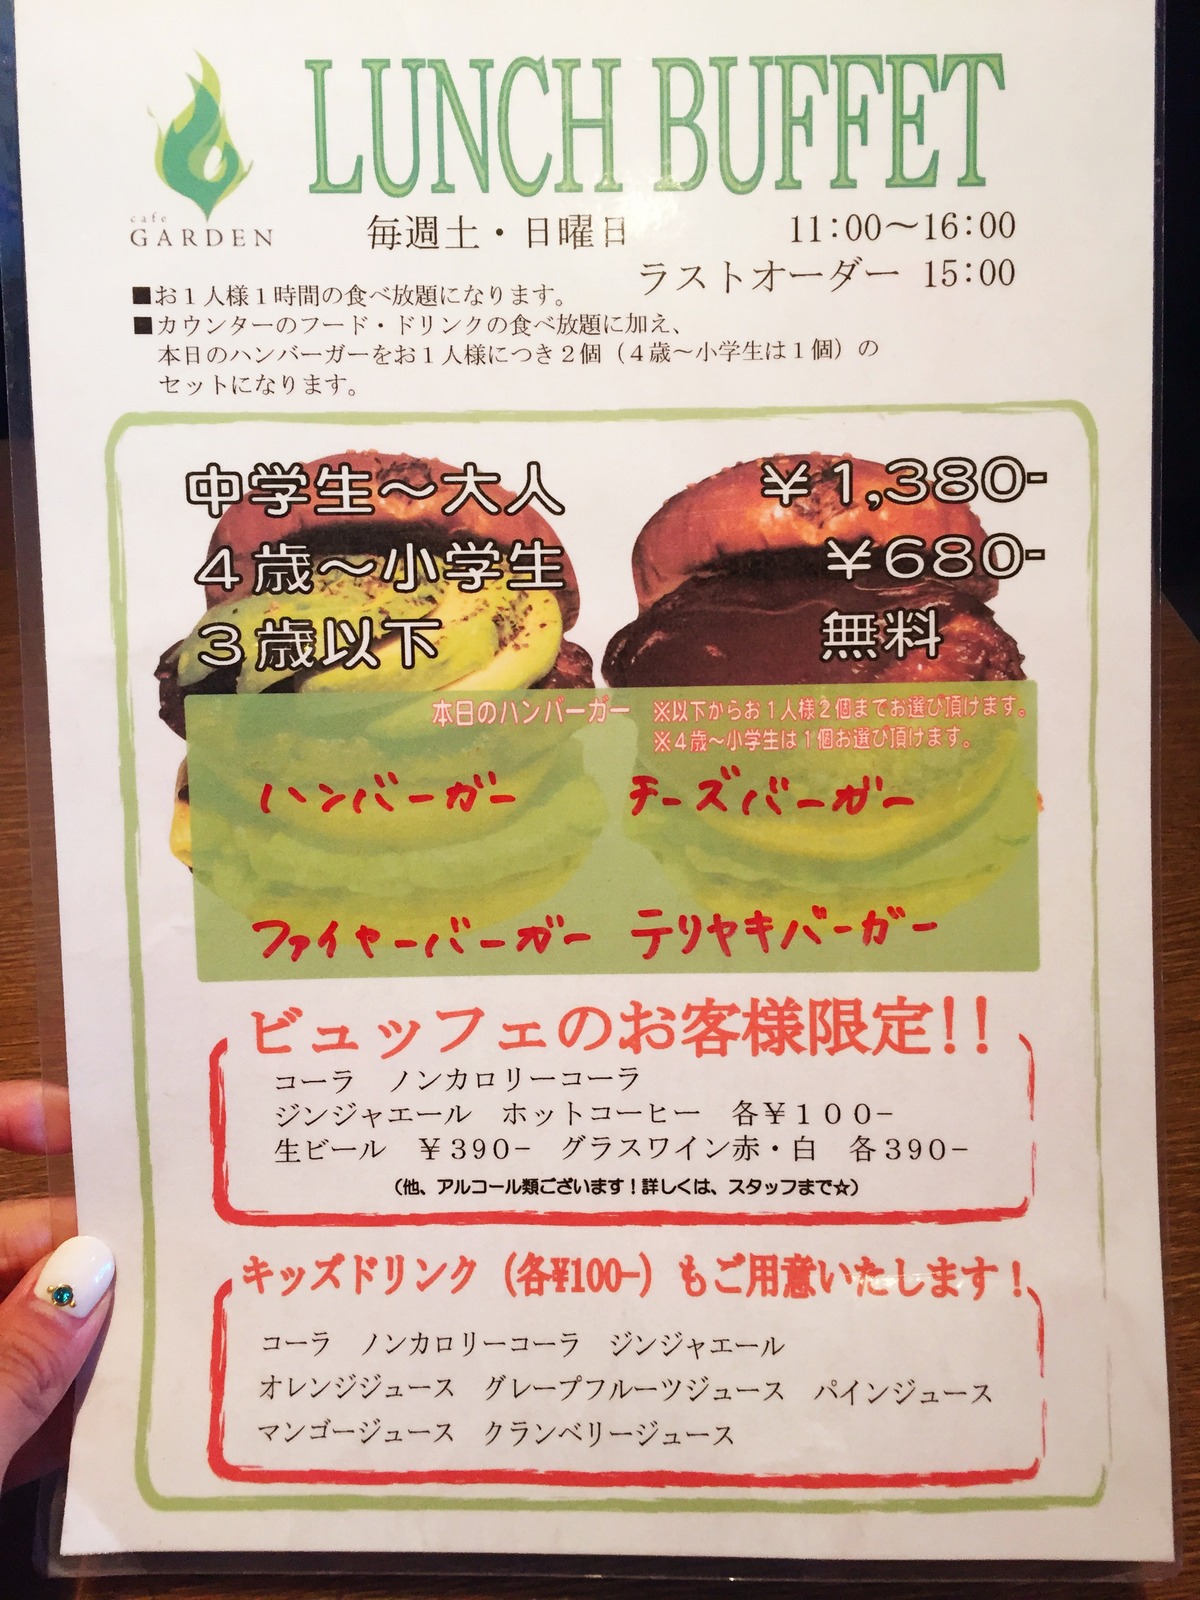 LUNCH BUFFET
cafe
GARDEN
毎週土・日曜日 11:00～16:00
ラストオーダー 15:00
■お１人様１時間の食べ放題になります。
■カウンターのフード・ドリンクの食べ放題に加え、
本日のハンバーガーをお１人様につき２個（４歳～小学生は１個）の
セットになります。
中学生～大人 ￥1,380-
４歳～小学生 ￥680-
３歳以下 無料
本日のハンバーガー ※以下からお１人様２個までお選び頂けます。
※４歳～小学生は１個お選び頂けます。
ハンバーガー チーズバーガー
ファイヤーバーガー テリヤキバーガー
ビュッフェのお客様限定!!
コーラ ノンカロリーコーラ
ジンジャエール ホットコーヒー 各￥１００−
生ビール ￥３９０− グラスワイン赤・白 各３９０−
（他、アルコール類ございます！詳しくは、スタッフまで☆）
キッズドリンク（各¥100-）もご用意いたします！
コーラ ノンカロリーコーラ ジンジャエール
オレンジジュース グレープフルーツジュース パインジュース
マンゴージュース クランベリージュース